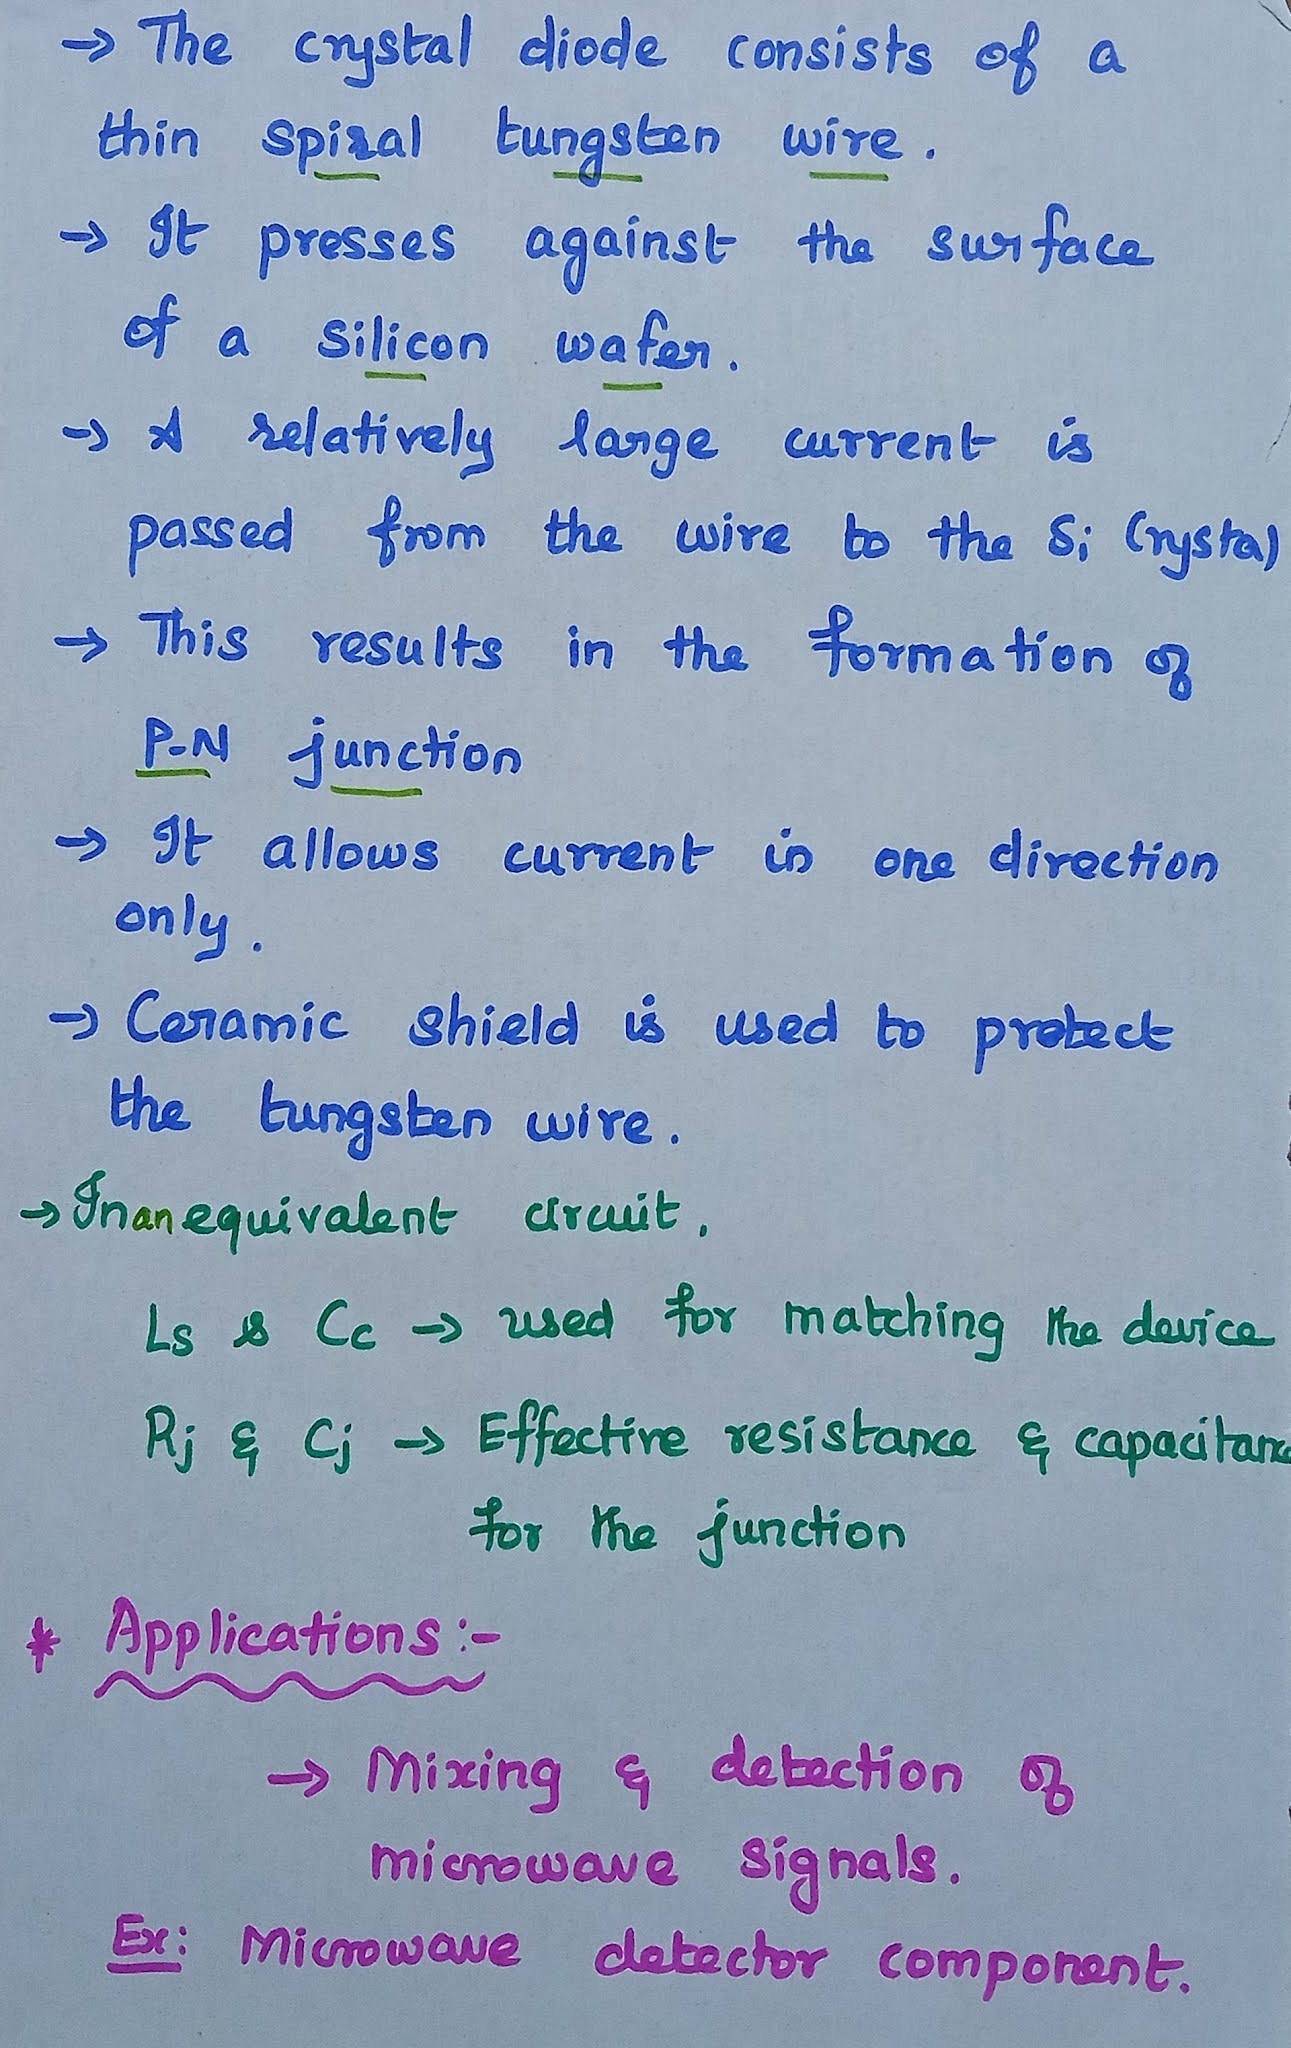 → The crystal diode consists of a
thin spiral tungsten wire.
→ It presses against the surface
of a silicon wafer.
→ A relatively large current is
passed from the wire to the Si Crystal
→ This results in the formation of
P-N junction
→ It allows current in one direction
only.
→ Ceramic shield is used to protect
the tungsten wire.
→ In an equivalent circuit,
Ls & Cc → used for matching the device
Rj & Cj → Effective resistance & capacitance
for the junction
* Applications:-
→ Mixing & detection of
microwave signals.
Ex: Microwave detector component.